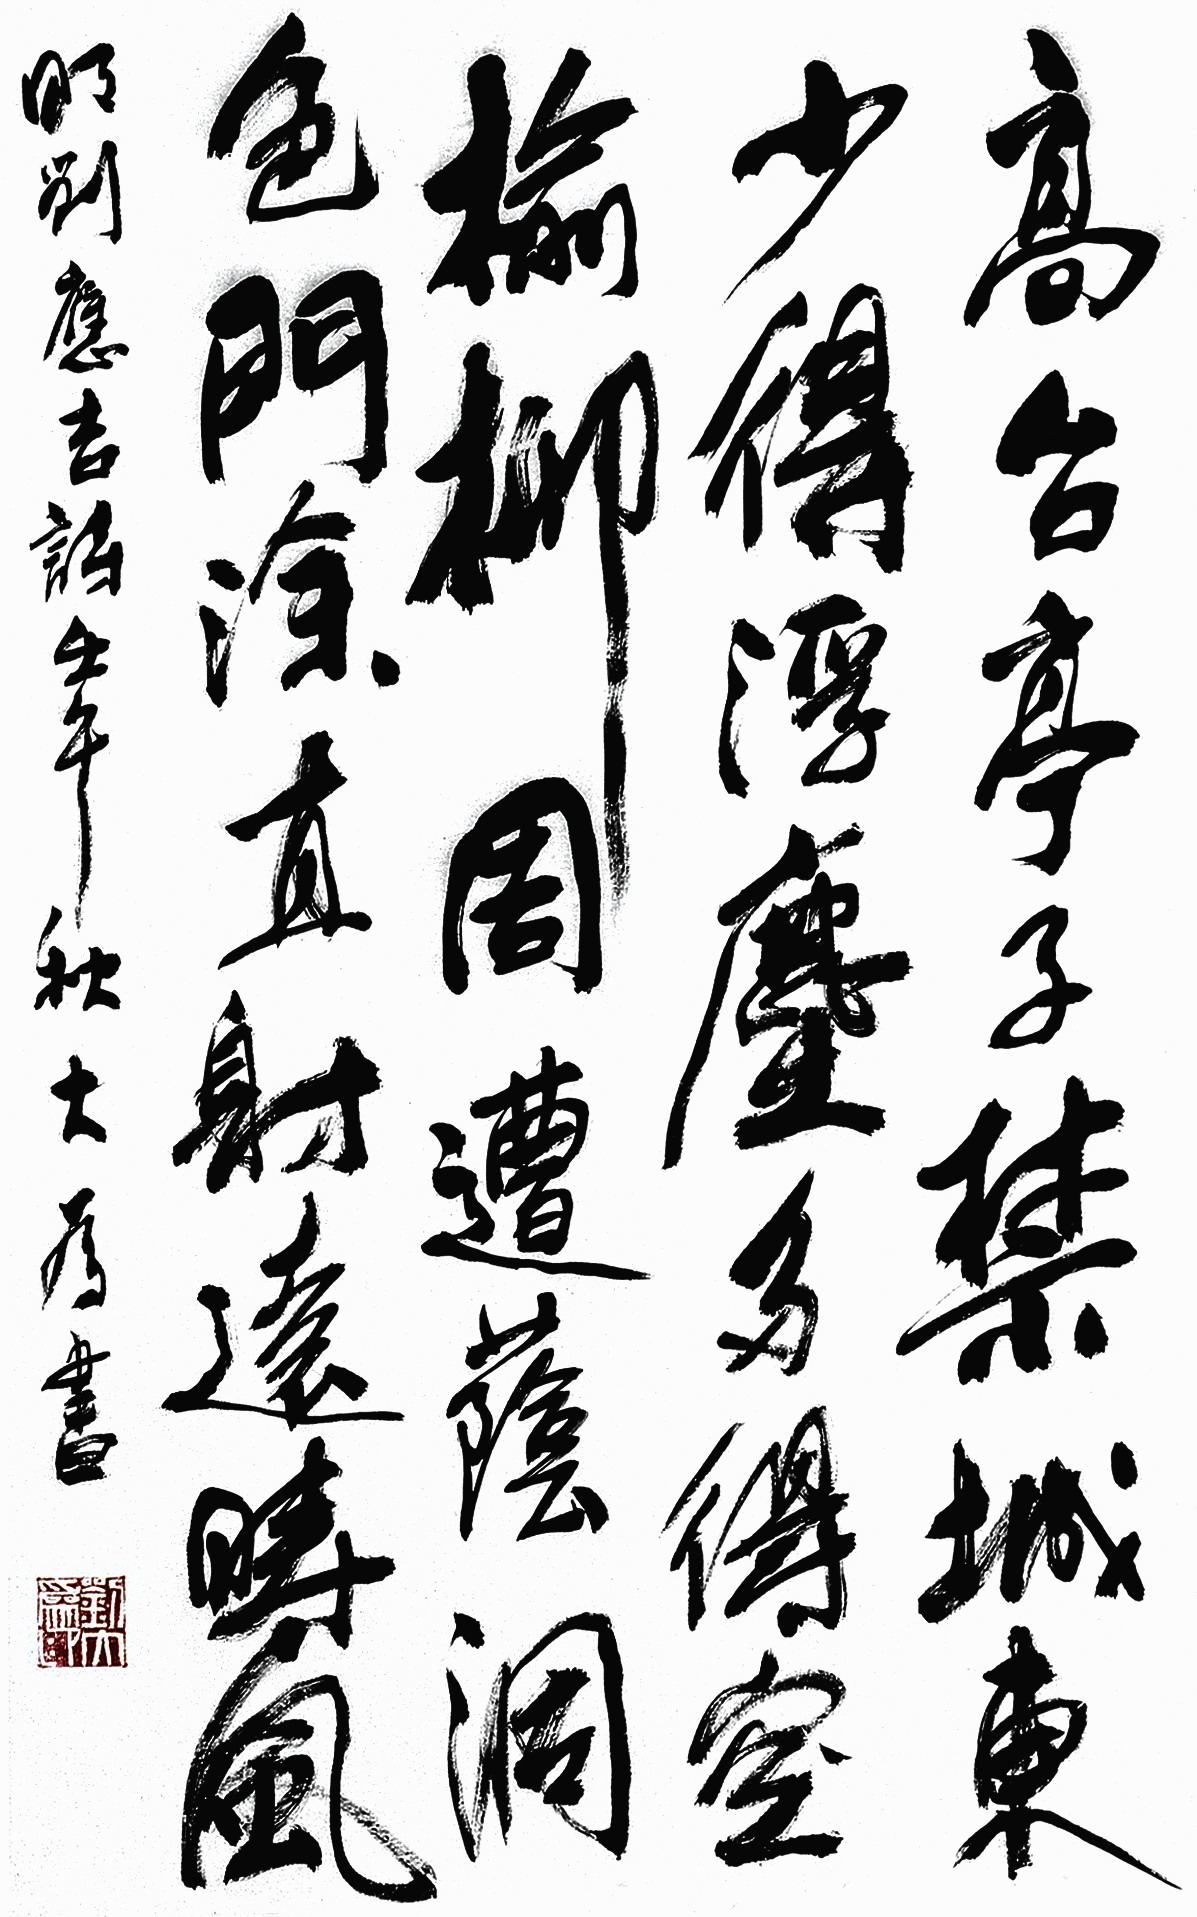 高台亭子禁城東
少得浮塵多得空
榆柳周遭蔭潤
色門深直射遠時風
明劉應吉詩壬午秋大為書
劉大為印